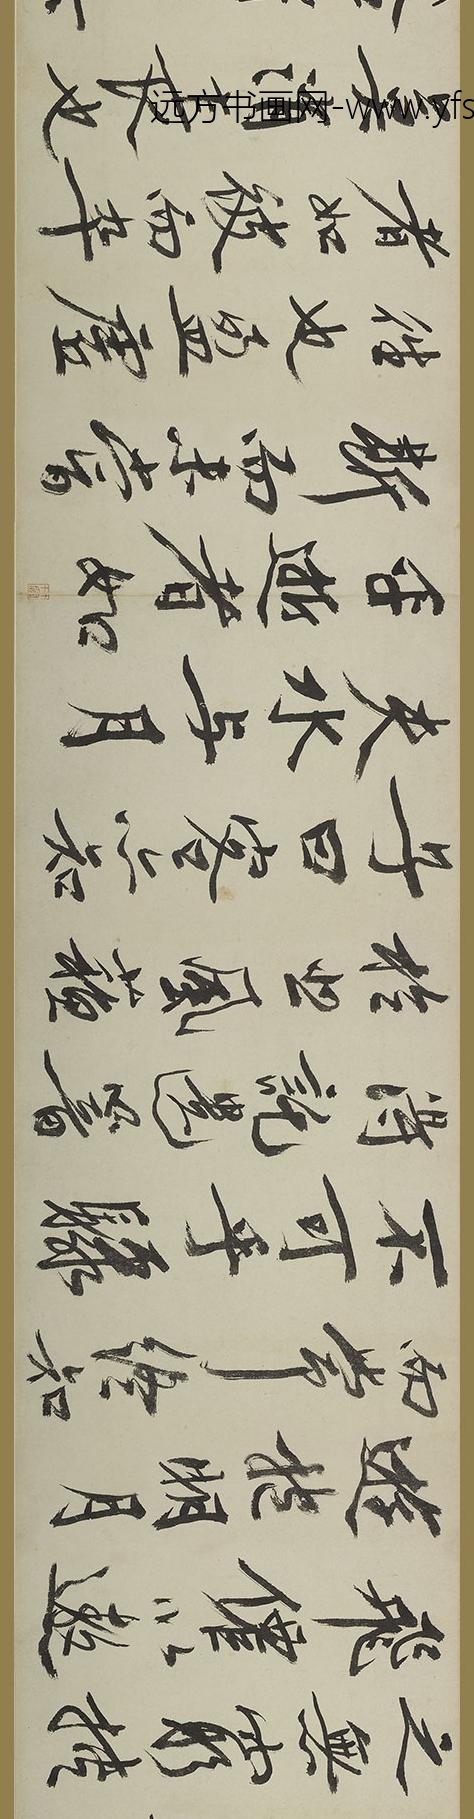 之無窮挾
飛僊以遨
遊抱明月
而長終知
不可乎驟
得託遺響
於悲風蘇
子曰客亦知
夫水与月
乎逝者如
斯而未嘗
往也盈虛
者如彼而卒
莫消長也
远方书画网-www.yfs